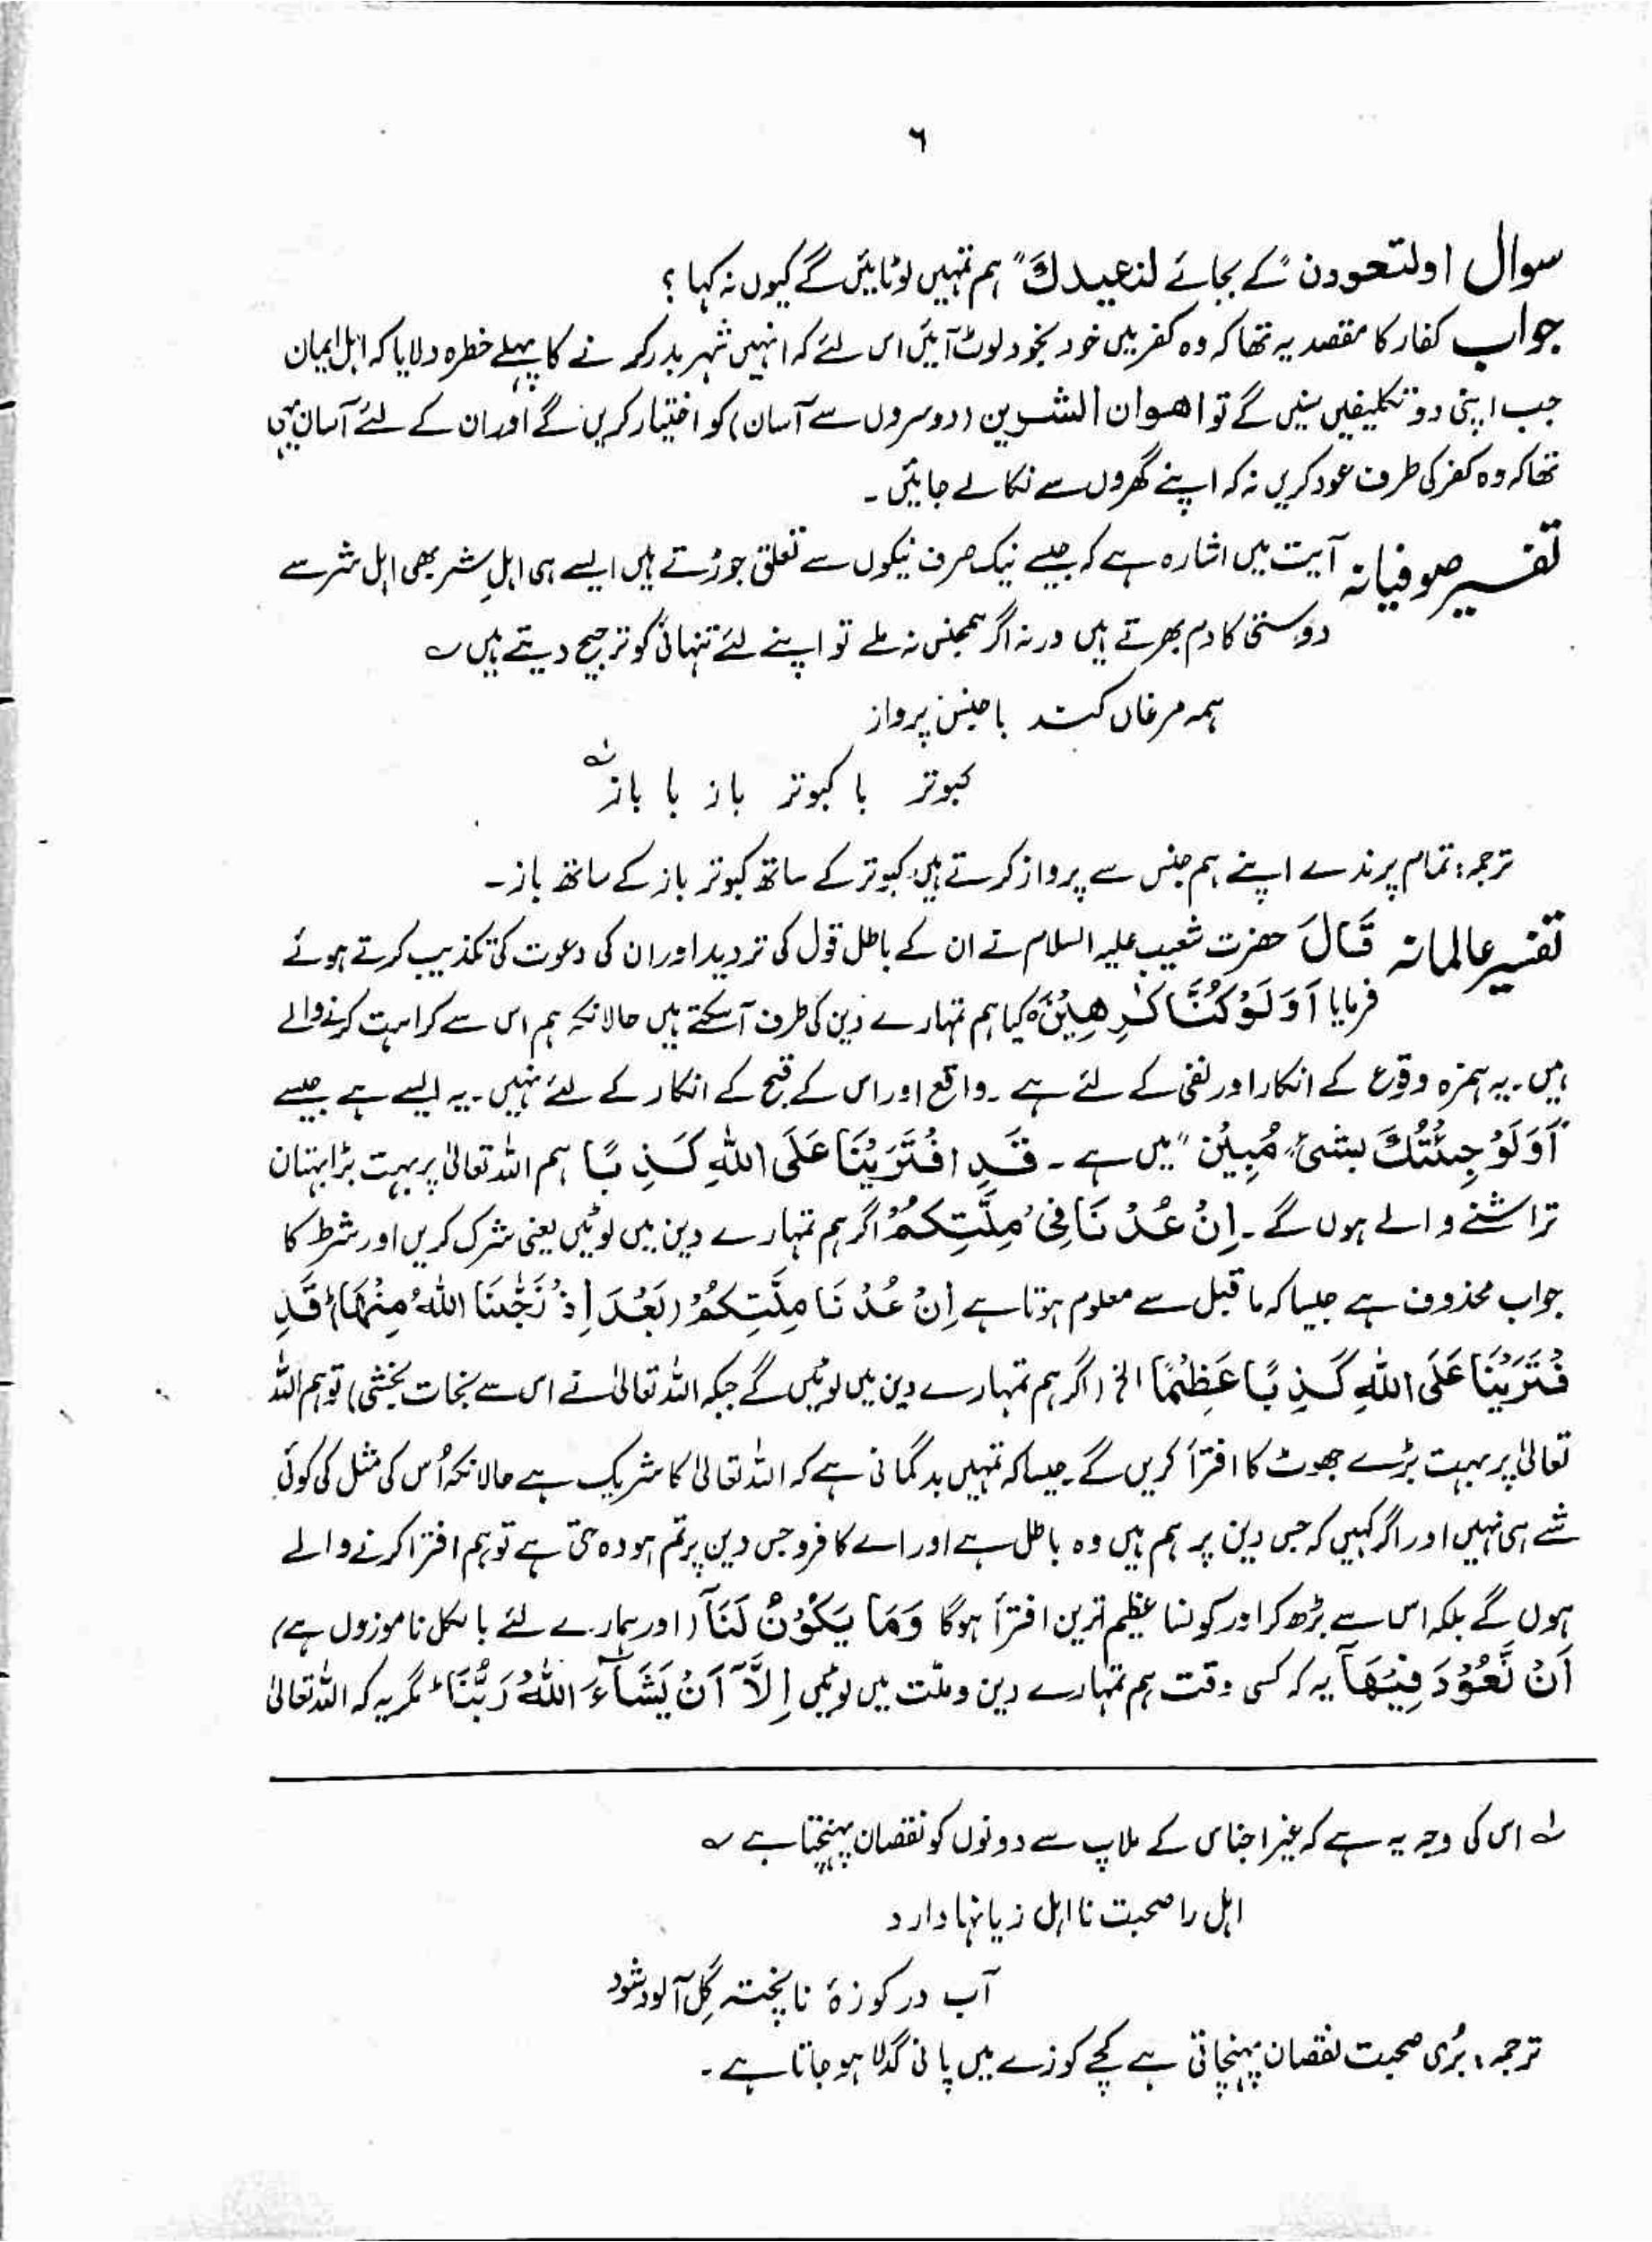 ٦
سوال اولتعودن" کے بجائے لنعیدك" ہم تمہیں لوٹائیں گے کیوں نہ کہا ؟
جواب کفار کا مقصد یہ تھا کہ وہ کفر میں خود بخود لوٹ آئیں اس لئے کہ انہیں شہر بدر کرنے کا پہلے خطرہ دلایا کہ اہل ایمان
جب اپنی دو تکلیفیں سنیں گے تو اھوان الشرین (دوسروں سے آسان) کو اختیار کریں گے اور ان کے لئے آسان یہی
تھا کہ وہ کفر کی طرف عود کریں نہ کہ اپنے گھروں سے نکالے جائیں ۔
تفسیر صوفیانہ آیت میں اشارہ ہے کہ جیسے نیک صرف نیکوں سے تعلق جوڑتے ہیں ایسے ہی اہلِ شر بھی اہل شر سے
دوستی کا دم بھرتے ہیں ورنہ اگر ہمجنس نہ ملے تو اپنے لئے تنہائی کو ترجیح دیتے ہیں ؎
ہمہ مرغاں کند با جنس پرواز
کبوتر با کبوتر باز با باز لہ
ترجمہ : تمام پرندے اپنے ہم جنس سے پرواز کرتے ہیں کبوتر کے ساتھ کبوتر باز کے ساتھ باز ۔
تفسیر عالمانہ قَالَ حضرت شعیب علیہ السلام نے ان کے باطل قول کی تردید اور ان کی دعوت کی تکذیب کرتے ہوئے
فرمایا اَوَلَوْ كُنَّا كٰرِهِيْنَ ہ کیا ہم تمہارے دین کی طرف آسکتے ہیں حالانکہ ہم اس سے کراہت کرنے والے
ہیں ۔ یہ ہمزہ وقوع کے انکار اور نفی کے لئے ہے ۔ واقع اور اس کے قبح کے انکار کے لئے نہیں ۔ یہ ایسے ہے جیسے
"اَوَلَوْ جِئْتُكَ بِشَىْءٍ مُّبِيْنٍ" میں ہے ۔ قَدِ افْتَرَيْنَا عَلَى اللهِ كَذِبًا ہم اللہ تعالیٰ پر بہت بڑا بہتان
تراشنے والے ہوں گے ۔ اِنْ عُدْنَا فِىْ مِلَّتِكُمْ اگر ہم تمہارے دین میں لوٹیں یعنی شرک کریں اور شرط کا
جواب محذوف ہے جیسا کہ ما قبل سے معلوم ہوتا ہے اِنْ عُدْنَا مِلَّتِكُمْ (بَعْدَ اِذْ نَجّٰىنَا اللهُ مِنْهَا) قَدِ
فْتَرَيْنَا عَلَى اللهِ كَذِبًا عَظِيْمًا الخ (اگر ہم تمہارے دین میں لوٹیں گے جبکہ اللہ تعالیٰ نے اس سے نجات بخشی) تو ہم اللہ
تعالیٰ پر بہت بڑے جھوٹ کا افترأ کریں گے جیسا کہ تمہیں بدگمانی ہے کہ اللہ تعالیٰ کا شریک ہے حالانکہ اُس کی مثل کی کوئی
شے ہی نہیں اور اگر کہیں کہ جس دین پر ہم ہیں وہ باطل ہے اور اے کافرو جس دین پر تم ہو وہ حق ہے تو ہم افترا کرنے والے
ہوں گے بلکہ اس سے بڑھ کر اور کونسا عظیم ترین افترأ ہوگا وَمَا يَكُوْنُ لَنَآ (اور ہمارے لئے بالکل ناموزوں ہے)
اَنْ نَّعُوْدَ فِيْهَآ یہ کہ کسی وقت ہم تمہارے دین و ملّت میں لوٹیں اِلَّآ اَنْ يَّشَآءَ اللهُ رَبُّنَا ط مگر یہ کہ اللہ تعالیٰ
لہ اس کی وجہ یہ ہے کہ غیر اجناس کے ملاپ سے دونوں کو نقصان پہنچتا ہے ؎
اہل را صحبت نا اہل زیانہا دارد
آب در کوزۂ ناپختہ گِل آلود شود
ترجمہ : بُری صحبت نقصان پہنچاتی ہے کچے کوزے میں پانی گدلا ہو جاتا ہے ۔